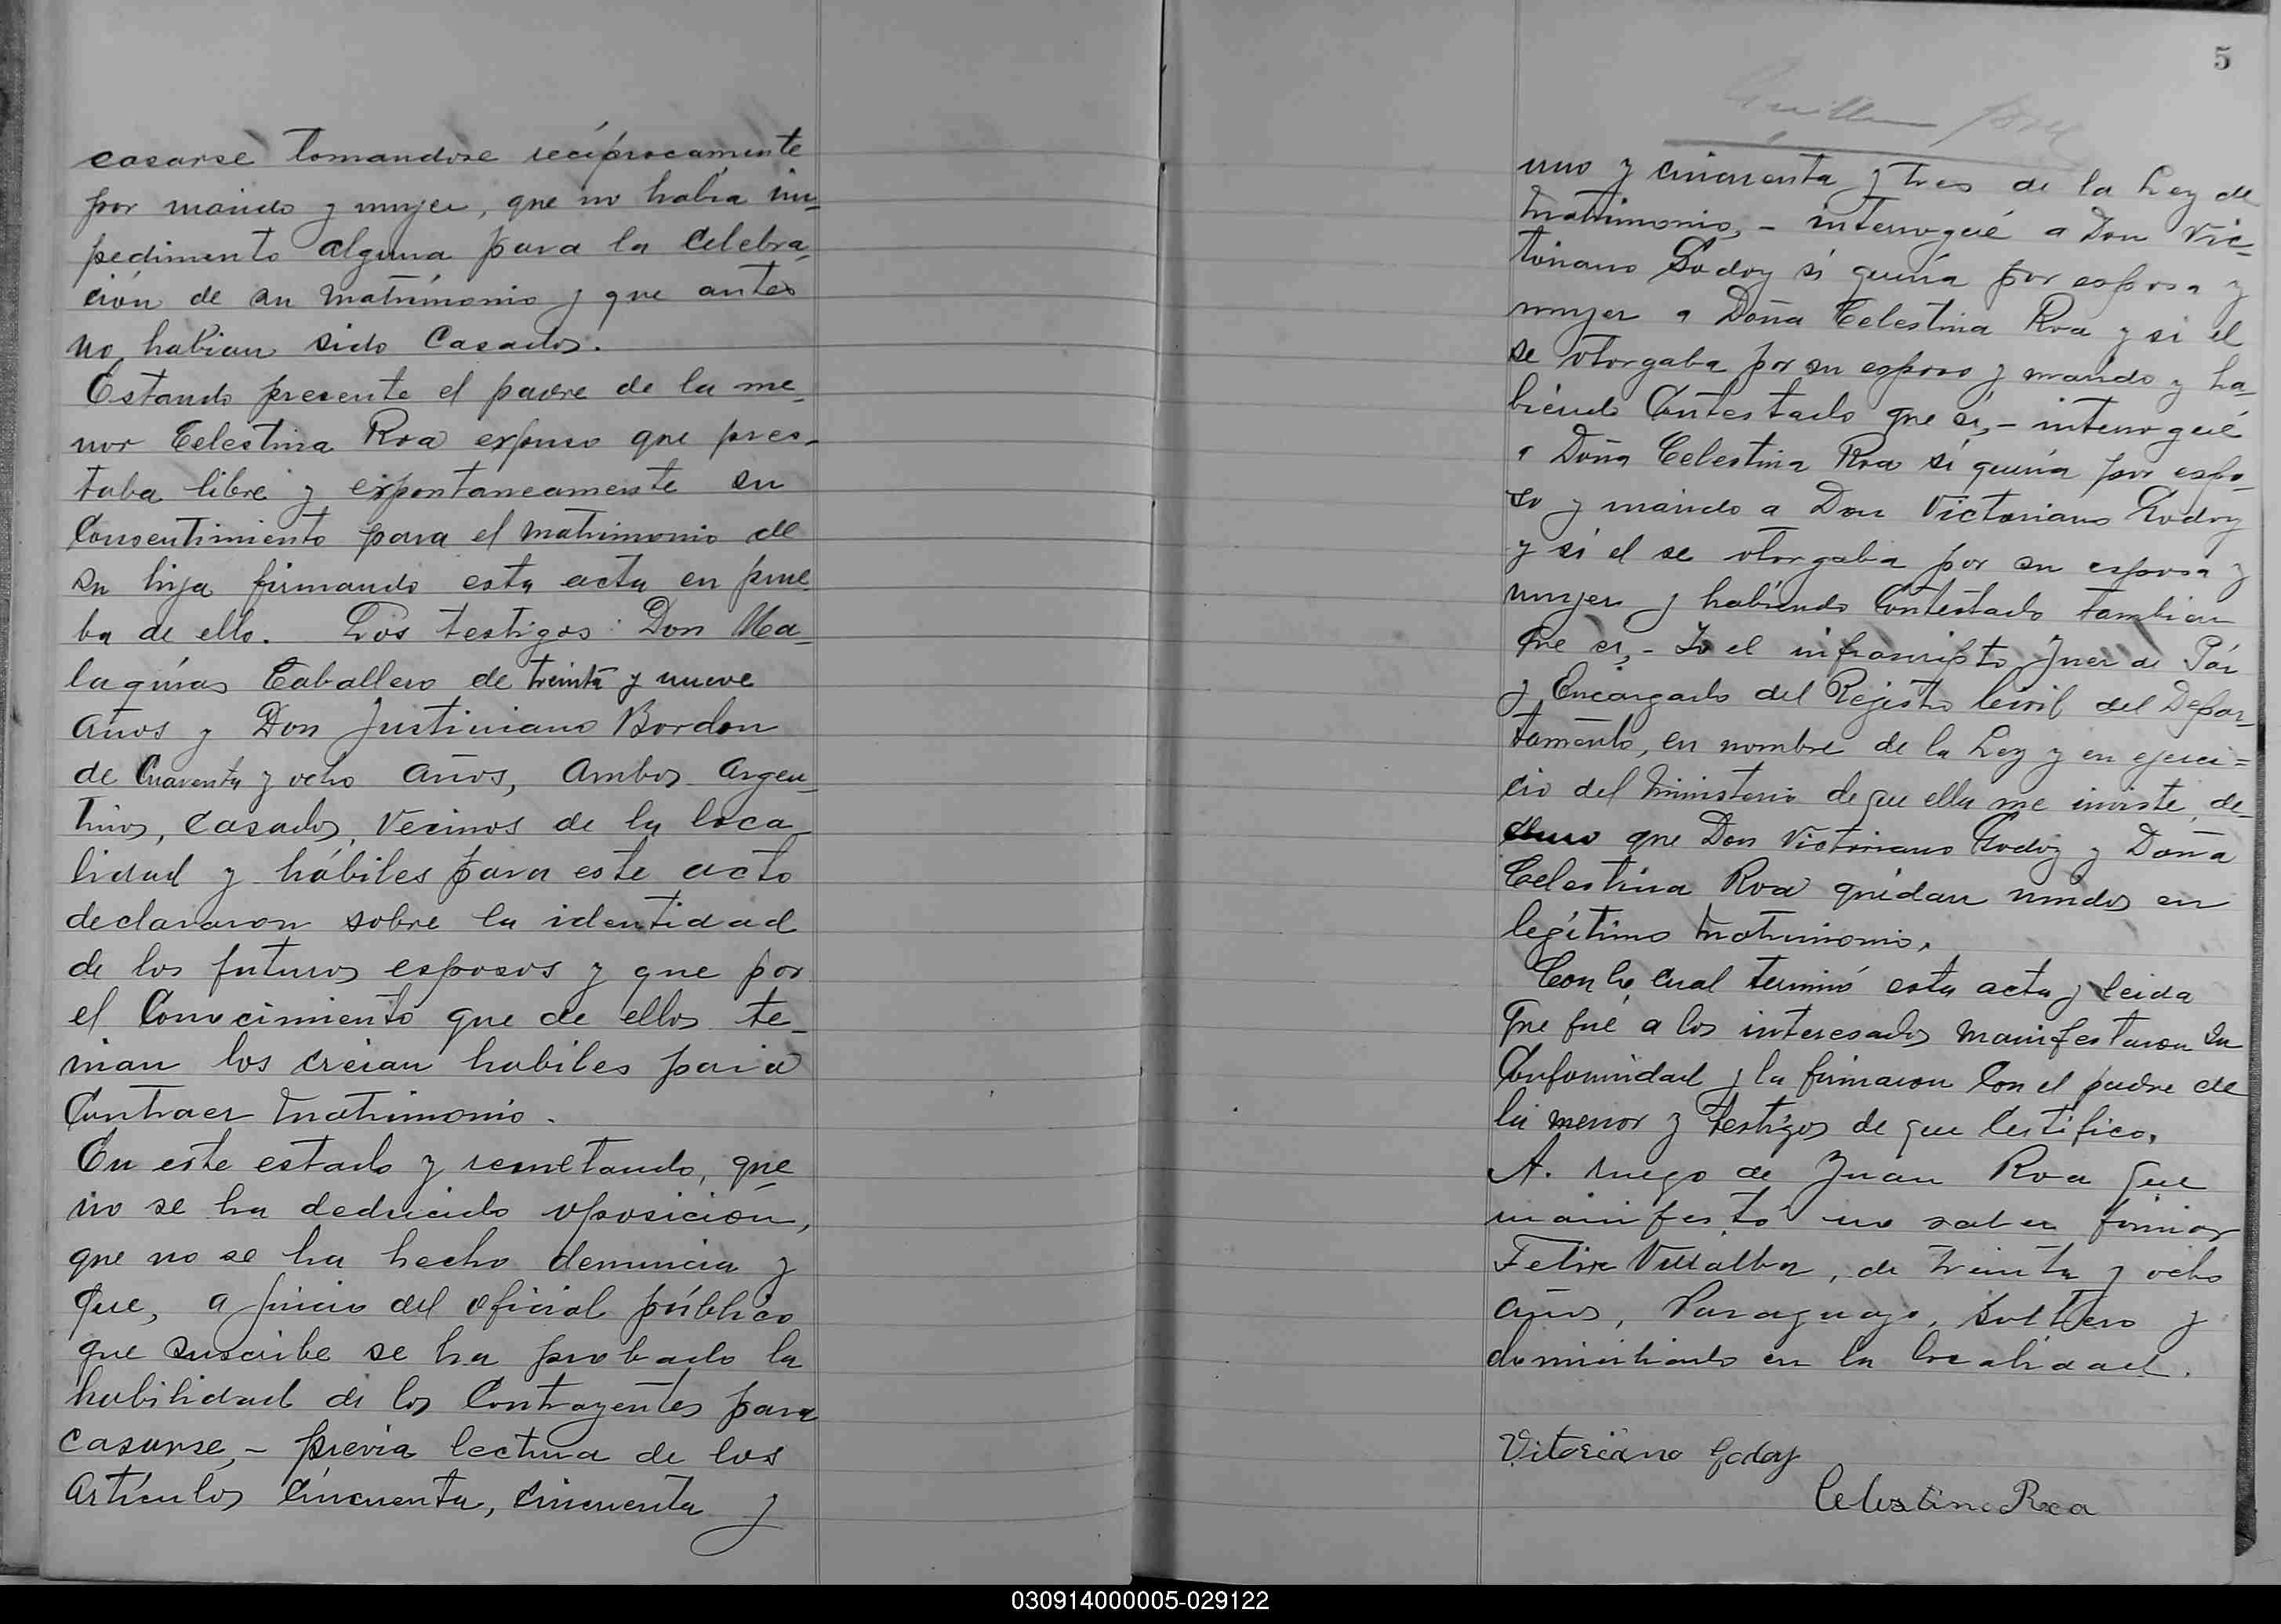 casarse tomandose recíprocamente
por marido y mujer, que no habia im-
pedimento alguna para la celebra-
ción de su matrimonio y que antes
no habian sido Casados.
Estando presente el padre de la me-
nor Celestina Roa expuso que pres-
taba libre y expontaneamente su
Consentimiento para el matrimonio de
su hija firmando esta acta en prue-
ba de ello. Los testigos: Don Ma-
laquías Caballero de treinta y nueve
años y Don Justiniano Bordon
de Cuarenta y ocho años, ambos argen-
tinos, casados, vecinos de la loca-
lidad y hábiles para este acto
declararon sobre la identidad
de los futuros esposos y que por
el Conocimiento que de ellos te-
nian los creian habiles para
Contraer matrimonio.
En este estado y resultando, que
no se ha deducido oposición,
que no se ha hecho denuncia y
que, a juicio del oficial público
que suscribe se ha probado la
habilidad de los Contrayentes para
casarse,- previa lectura de los
artículos Cincuenta, cincuenta y
5
uno y cincuenta y tres de la Ley de
matrimonio,- interrogué a Don Vic-
toriano Godoy si quería por esposa y
mujer a Doña Celestina Roa y si el
se otorgaba por su esposo y marido y ha-
biendo Contestado que si,- interrogué
a Doña Celestina Roa si quería por espo-
so y marido a Don Victoriano Godoy
y si el se otorgaba por su esposa y
mujer y habiendo Contestado tambien
que si,- Yo el infrascripto Juez de Páz
y Encargado del Rejistro Civil del Depar-
tamento, en nombre de la Ley y en ejerci=
cio del ministerio de que ella me inviste, de-
claro que Don Victoriano Godoy y Doña
Celestina Roa quedan unidos en
legítimo matrimonio.
Con lo cual terminó esta acta y leida
que fué a los interesados manifestaron su
Conformidad y la firmaron Con el padre de
la menor y testigos de que Certifico.
A. ruego de Juan Roa que
manifestó no saber firmar
Felix Villalba, de treinta y ocho
años, Paraguayo, soltero y
domiciliado en la localidad.
Vitoriano Godoy
Celestina Roa
030914000005-029122